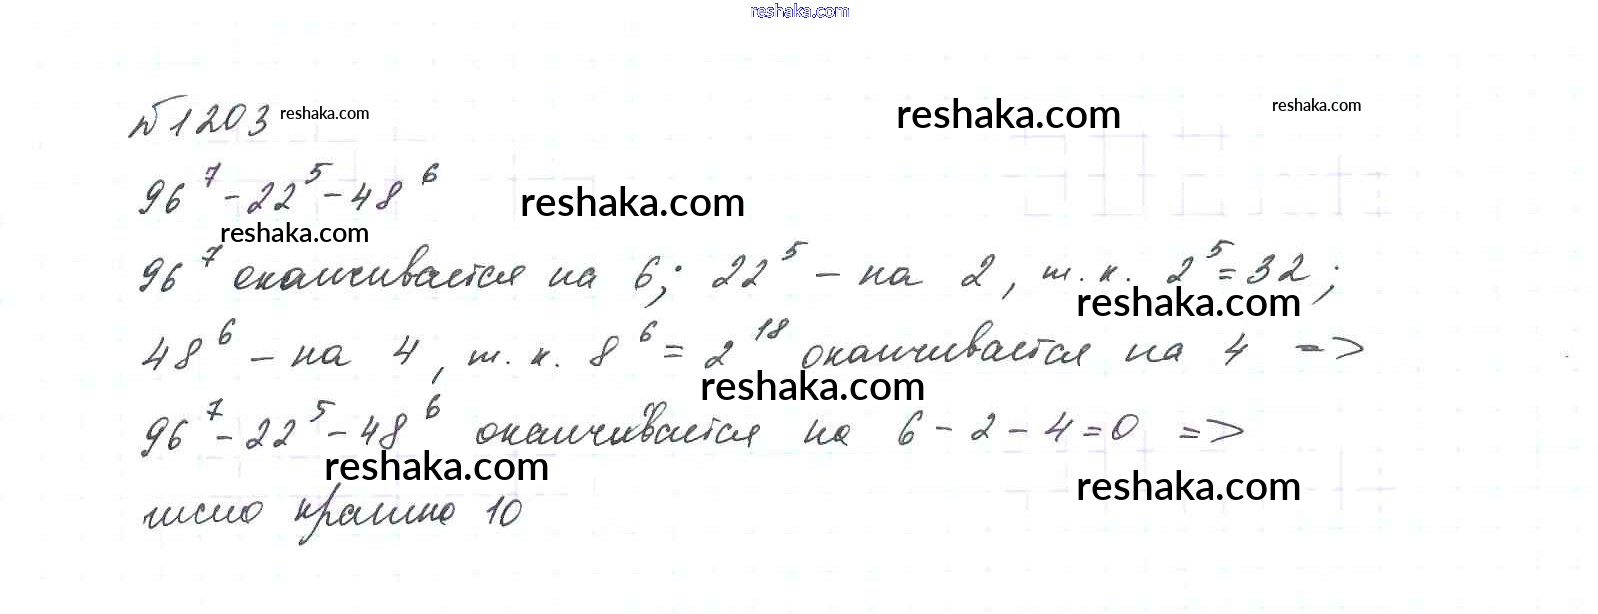 reshaka.com
№1203 reshaka.com reshaka.com reshaka.com
96⁷-22⁵-48⁶ reshaka.com
reshaka.com
96⁷ оканчивается на 6; 22⁵ – на 2, т. к. 2⁵=32;
reshaka.com
48⁶ – на 4, т. к. 8⁶ = 2¹⁸ оканчивается на 4 =>
reshaka.com
96⁷-22⁵-48⁶ оканчивается на 6-2-4=0 =>
reshaka.com reshaka.com
число кратно 10